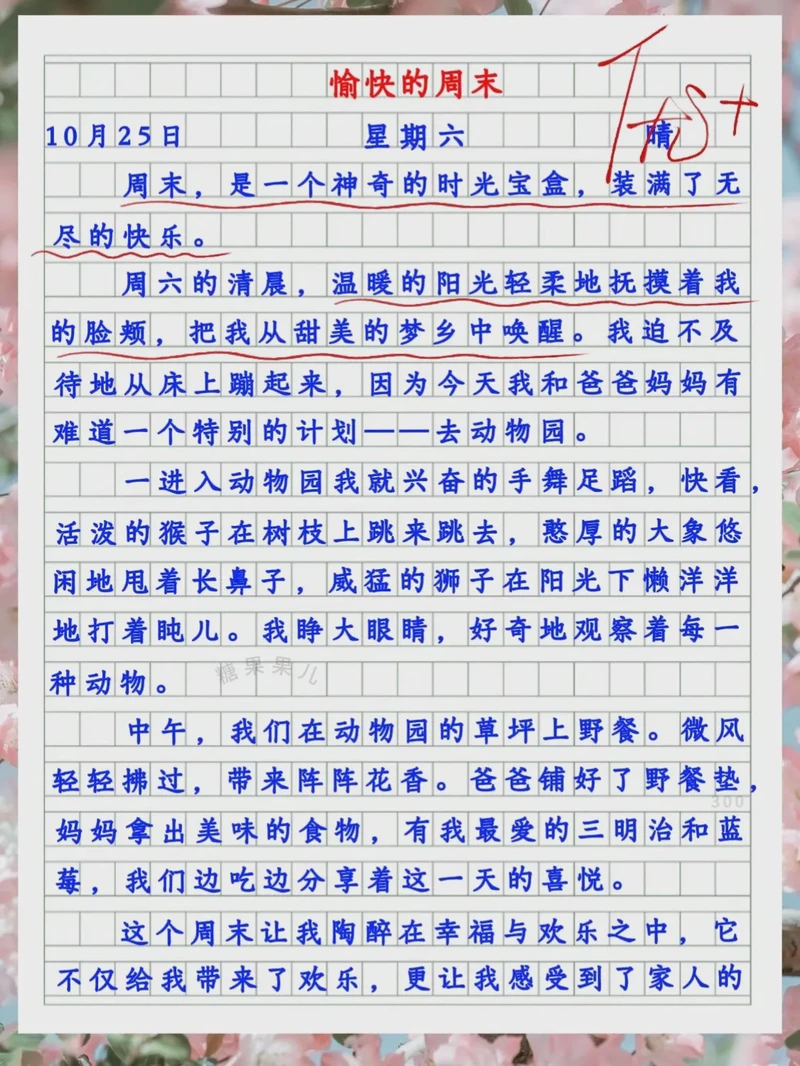 愉快的周末
10月25日 星期六 晴
周末，是一个神奇的时光宝盒，装满了无
尽的快乐。
周六的清晨，温暖的阳光轻柔地抚摸着我
的脸颊，把我从甜美的梦乡中唤醒。我迫不及
待地从床上蹦起来，因为今天我和爸爸妈妈有
难道一个特别的计划——去动物园。
一进入动物园我就兴奋的手舞足蹈，快看，
活泼的猴子在树枝上跳来跳去，憨厚的大象悠
闲地甩着长鼻子，威猛的狮子在阳光下懒洋洋
地打着盹儿。我睁大眼睛，好奇地观察着每一
种动物。
糖果果儿
中午，我们在动物园的草坪上野餐。微风
轻轻拂过，带来阵阵花香。爸爸铺好了野餐垫，
300
妈妈拿出美味的食物，有我最爱的三明治和蓝
莓，我们边吃边分享着这一天的喜悦。
这个周末让我陶醉在幸福与欢乐之中，它
不仅给我带来了欢乐，更让我感受到了家人的